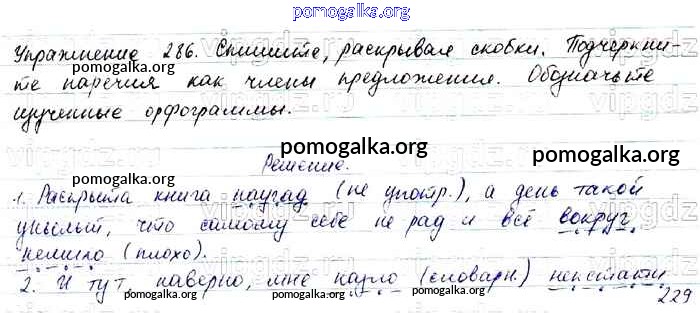 pomogalka.org
Упражнение 286. Спишите, раскрывая скобки. Подчеркни-
pomogalka.org pomogalka.org
те наречия как члены предложения. Обозначьте
изученные орфограммы.
pomogalka.org pomogalka.org
Решение.
1. Раскрыта книга наугад (не употр.), а день такой
унылый, что самому себе не рад и всё вокруг
немило (плохо).
pomogalka.org pomogalka.org
2. И тут, наверно, мне назло (словарн.) некстати
pomogalka.org pomogalka.org
229